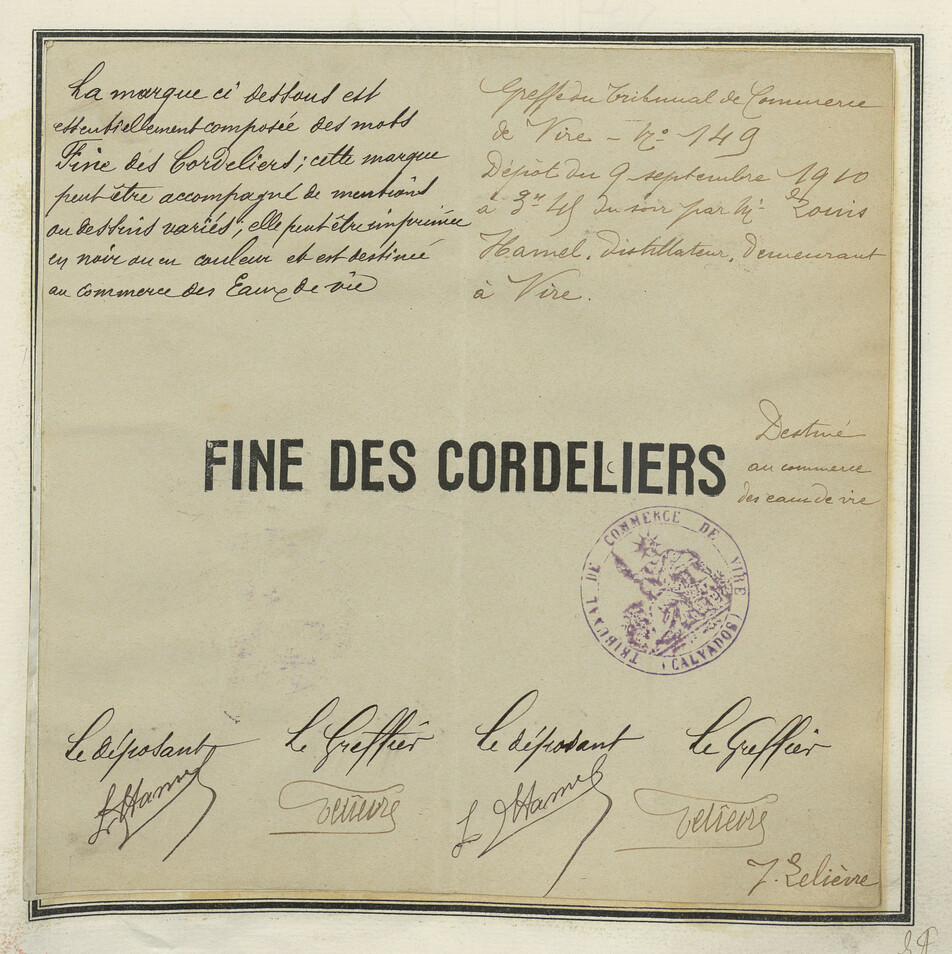 La marque ci dessous est
essentiellement composée des mots
Fine des Cordeliers; cette marque
peut être accompagné de mentions
ou dessins variés; elle peut être imprimée
en noir ou en couleur et est destinée
au commerce des Eaux de vie
Greffe du Tribunal de Commerce
de Vire - No 149
Dépôt du 9 septembre 1910
à 3h 45 du soir par Mr Louis
Hamel, distillateur, demeurant
à Vire.
FINE DES CORDELIERS
Destiné
au commerce
des eaux de vie
TRIBUNAL DE COMMERCE DE VIRE
(CALVADOS)
Le déposant
Le Greffier
Le déposant
Le Greffier
L Hamel
Lelièvre
L Hamel
Lelièvre
J. Lelièvre